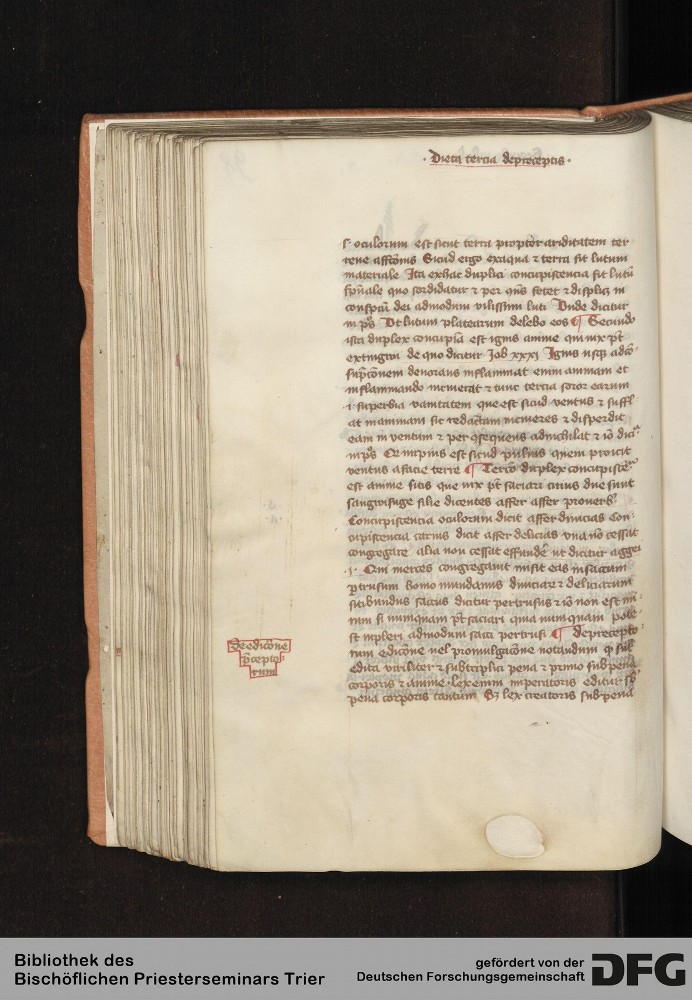 · Dieta tercia de preceptis ·
s· oculorum est sicut terra propter ariditatem ter
rene affc̄onis Sicud ergo ex aqua ⁊ terra fit lutum
materiale Ita ex hac duplici concupiscencia fit lutū
sp̄uale quo sordidatur ⁊ per q̄ns fetet ⁊ displicꝫ in
conspc̄u dei admodum vilissimi luti Vnde dicitur
in pˢ Vt lutum platearum delebo eos ¶ Secundo
ista duplex concupīa est ignis anime qui nix pt̄
extingwi de quo dicitur Job xxxi Ignis usqꝫ ad cō
sūpc̄onem devorans inflammat enim animam et
inflammando incinerat ⁊ tunc tercia soror earum
·i· superbia vanitatem que est sicud ventus ⁊ suffl
at animam sic redactam in cineres ⁊ disperdit
eam in ventum ⁊ per ꝯsequens adnichilat ⁊ iō dicᷣ
in pˢ impius est sicud pulvis quem proicit
ventus a facie terre ¶ Tercō duplex concupiscēᵃ
est anime sitis que nix pt̄ saciari cuius due sunt
sangwisuge filie dicentes affer affer prouerbˀ
Concupiscencia oculorum dicit affer divicias Con
cupiscencia carnis dicit affer delicias vna nō cessat
congregare alia non cessat effundē ut dicitur aggei
·i· Qui merces congregauit misit eas in saccum
ꝑtusum homo mundanus diviciarꝫ ⁊ deliciarum
sitibundus saccus dicitur pertusus ⁊ iō non est mi
rum si numquam pt̄ saciari quia numquam pote
st inpleri admodum sacci pertusi ¶ de precepto
rum edic̄one uel promulgac̄one notandum ꝙ sūt
edita viriliter ⁊ sub triplici pena ⁊ primo sub pena
corporis ⁊ anime · lex enim imperatoris editur sb̄
pena corporis tantum Sꝫ lex creatoris sub pena
De edic̄one
p̄cepto
rum
Bibliothek des
Bischöflichen Priesterseminars Trier
gefördert von der
Deutschen Forschungsgemeinschaft
DFG